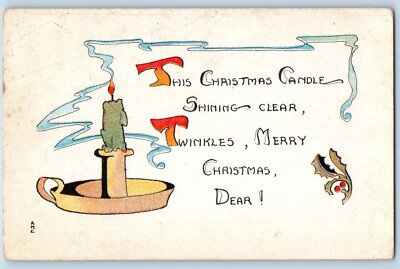 This Christmas Candle
Shining clear,
Twinkles, Merry
Christmas,
Dear!